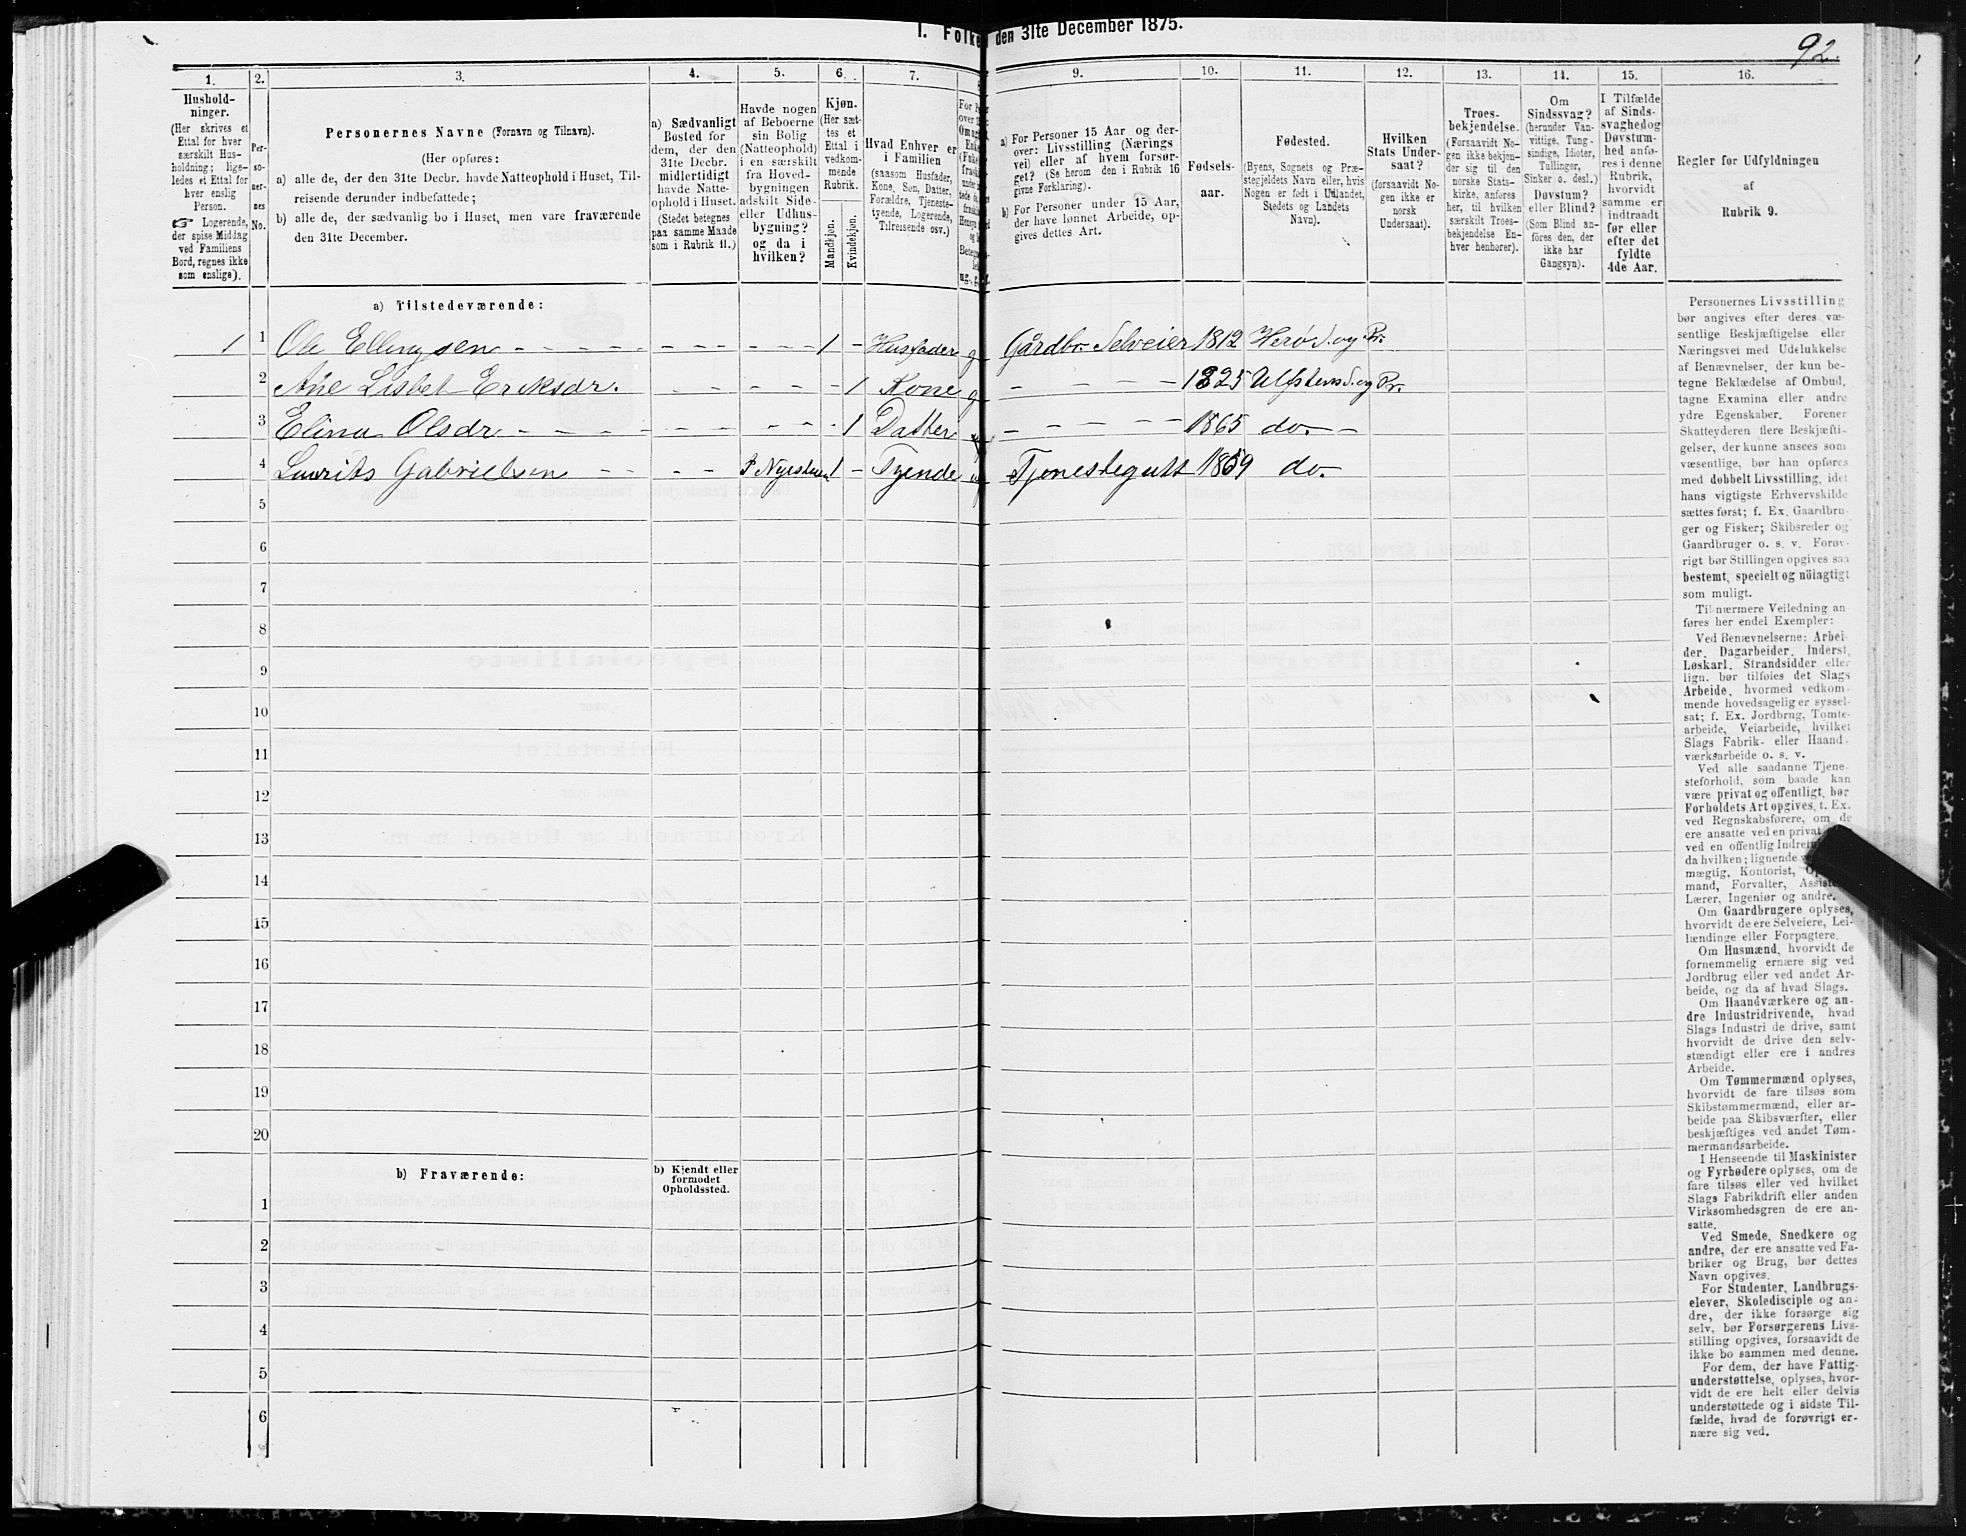 I. Folke den 31te December 1875.
92.
1.
2.
3.
4.
5.
6.
7.
9.
10.
11.
12.
13.
14.
15.
16.
Hushold-
ninger.
(Her skrives et
Ettal for hver
særskilt Hus-
holdning; lige-
ledes et Ettal for
hver enslig
Person.
☞ Logerende,
der spise Middag
ved Familiens
Bord, regnes ikke
som enslige).
Per-
so-
ner-
nes
No.
Personernes Navne (Fornavn og Tilnavn).
(Her opføres:
a) alle de, der den 31te Decbr. havde Natteophold i Huset, Til-
reisende derunder indbefattede;
b) alle de, der sædvanlig bo i Huset, men vare fraværende
den 31te December.
a) Sædvanligt
Bosted for
dem, der den
31te Decbr.
midlertidigt
havde Natte-
ophold i Huset.
(Stedet betegnes
paa samme Maade
som i Rubrik 11.)
Havde nogen
af Beboerne
sin Bolig
(Natteophold)
i en særskilt
fra Hoved-
bygningen
adskilt Side-
eller Udhus-
bygning?
og da i
hvilken?
Kjøn.
(Her sæt-
tes et
Ettal i
vedkom-
mende
Rubrik.
Mandkjøn.
Kvindekjøn.
Hvad Enhver er
i Familien
(saasom Husfader,
Kone, Søn, Datter,
Forældre, Tjeneste-
tyende, Logerende,
Tilreisende osv.)
a) For Personer 15 Aar og der-
over: Livsstilling (Nærings
vei) eller af hvem forsør-
get? (Se herom den i Rubrik 16
givne Forklaring).
b) For Personer under 15 Aar,
der have lønnet Arbeide, op-
gives dettes Art.
Fødsels-
aar.
Fødested.
(Byens, Sognets og Præ-
stegjeldets Navn eller, hvis
Nogen er født i Udlandet,
Stedets og Landets
Navn).
Hvilken
Stats Under-
saat?
(forsaavidt No-
gen ikke er
norsk
Undersaat).
Troes-
bekjendelse.
(Forsaavidt No-
gen ikke bekjen-
der sig til den
norske Stats-
kirke, anføres
her, til hvilken
særskilt Troes-
bekjendelse En-
hver henhører).
Om
Sindssvag?
(herunder Van-
vittige, Tung-
sindige, Idioter,
Tullinger,
Sinker o. desl.)
Døvstum?
eller Blind?
(Som Blind an-
føres den, der
ikke har
Gangsyn).
I Tilfælde
af Sinds-
svaghed og
Døvstum-
hed anfø-
res i denne
Rubrik,
hvorvidt
samme er
indtraadt
før eller
efter det
fyldte
4de Aar.
Regler for Udfyldningen
af
Rubrik 9.
a) Tilstedeværende:
1 1 Ole Ellingsen - - - - - - - 1 - Husfader g Gårdbr. Selveier 1812 Herø S. og Pr.
2 Ane Lisbet Eriksdr. - - - - - - 1 Kone g - - - - 1825 Ulfstens S. og Pr.
3 Elina Olsdr - - - - - - - 1 Datter - - - - 1865 do. -
4 Laurits Gabrielsen - - - 1 - Tyende Tjenestegutt 1859 do.
5
6
7
8
9
10
11
12
13
14
15
16
17
18
19
20
b) Fraværende:
b) Kjendt eller
formodet
Opholdssted.
1
2
3
4
5
6
Personernes Livsstilling
bør angives efter deres væ-
sentlige Beskjæftigelse eller
Næringsvei med Udelukkelse
af Benævnelser, der kun be-
tegne Beklædelse af Ombud,
tagne Examina eller andre
ydre Egenskaber. Forener
Skatteyderen flere Beskjæfti-
gelser, der kunne ansees som
væsentlige, bør han opføres
med dobbelt Livsstilling, idet
hans vigtigste Erhvervskilde
sættes først; f. Ex. Gaardbru-
ger og Fisker; Skibsreder og
Gaardbruger o. s. v. Forøv-
rigt bør Stillingen opgives saa
bestemt, specielt og nöiagtigt
som muligt.
Til nærmere Veiledning an-
føres her endel Exempler:
Ved Benævnelserne: Arbei-
der, Dagarbeider, Inderst,
Løskarl, Strandsidder eller
lign. bør tilføies det Slags
Arbeide, hvormed vedkom-
mende hovedsagelig er syssel-
sat; f. Ex. Jordbrug, Tomte-
arbeide, Veiarbeide, hvilket
Slags Fabrik- eller Haand-
værksarbeide o. s. v.
Ved alle saadanne Tjene-
steforhold, som baade kan
være privat og offentligt, bør
Forholdets Art opgives, t. Ex.
ved Regnskabsførere, om de
ere ansatte ved en privat
ved en offentlig Indre
da hvilken; lignende
mægtig, Kontorist,
mand, Forvalter,
Lærer, Ingeniør og andre.
Om Gaardbrugere oplyses,
hvorvidt de ere Selveiere, Lei-
lændinge eller Forpagtere.
Om Husmænd, hvorvidt de
fornemmelig ernære sig ved
Jordbrug eller ved andet Ar-
beide, og da af hvad Slags.
Om Haandværkere og an-
dre Industridrivende, hvad
Slags Industri de drive, samt
hvorvidt de drive den selv-
stændigt eller ere i andres
Arbeide.
Om Tømmermænd oplyses,
hvorvidt de fare tilsøs som
Skibstømmermænd, eller ar-
beide paa Skibsværfter, eller
beskjæftiges ved andet Tøm-
mermandsarbeide.
I Henseende til Maskinister
og Fyrbødere oplyses, om de
fare tilsøs eller ved hvilket
Slags Fabrikdrift eller anden
Virksomhedsgren de ere an-
satte.
Ved Smede, Snedkere og
andre, der ere ansatte ved Fa-
briker og Brug, bør dettes
Navn opgives.
For Studenter, Landbrugs-
elever, Skoledisciple og an-
dre, der ikke forsørge sig
selv, bør Forsørgerens Livs-
stilling opgives, forsaavidt de
ikke bo sammen med denne.
For dem, der have Fattig-
understøttelse, oplyses, hvor-
vidt de ere helt eller delvis
understøttede og i sidste Til-
fælde, hvad de forøvrigt er-
nære sig ved.